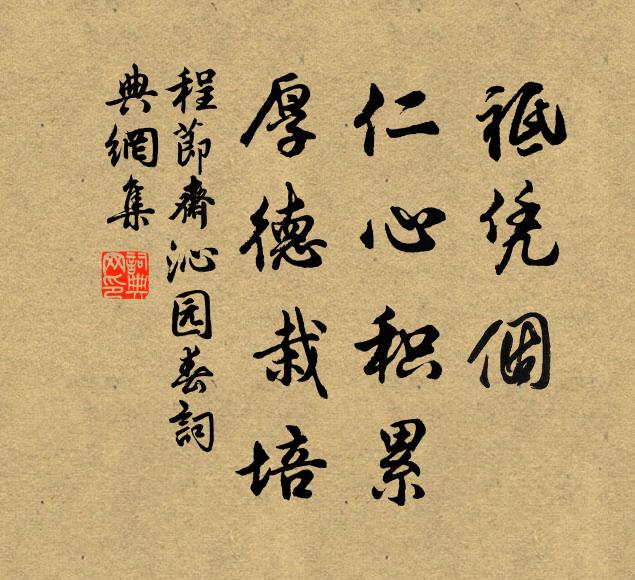 祗凭個
仁心积累
厚德栽培
程節齋沁园春詞
典網集
詞典
网印